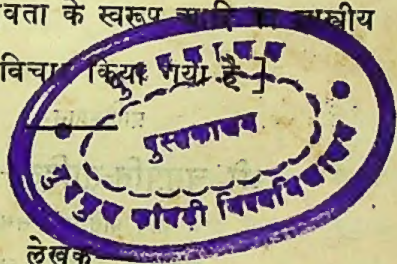 वता के स्वरूप आदि का शास्त्रीय
विचार किया गया है]
पुस्तकालय
गुरुकुल काँगड़ी विश्वविद्यालय
लेखक